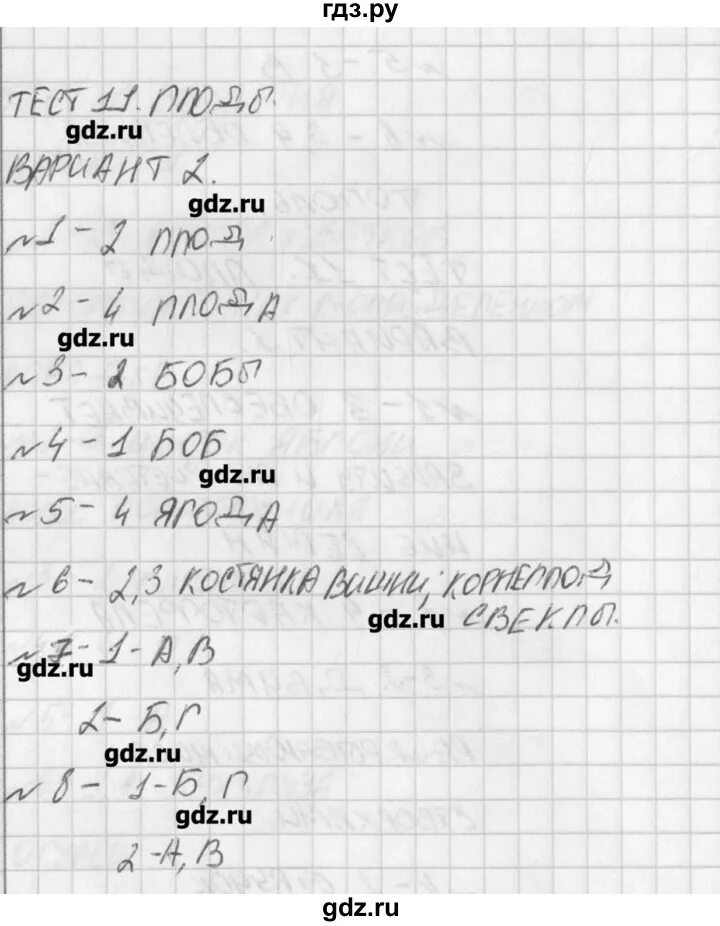 гдз.ру
ТЕСТ 11. ПЛОДЫ.
gdz.ru
ВАРИАНТ 2.
gdz.ru
№1 - 2 ПЛОД
№2 - 4 ПЛОДА
gdz.ru
№3 - 2 БОБЫ
№4 - 1 БОБ
gdz.ru
№5 - 4 ЯГОДА
№6 - 2,3 КОСТЯНКА ВИШНИ; КОРНЕПЛОД
gdz.ru СВЕКЛЫ.
№7 - 1 - А, В
gdz.ru
2 - Б, Г
gdz.ru
№8 - 1 - Б, Г
gdz.ru
2 - А, В
gdz.ru